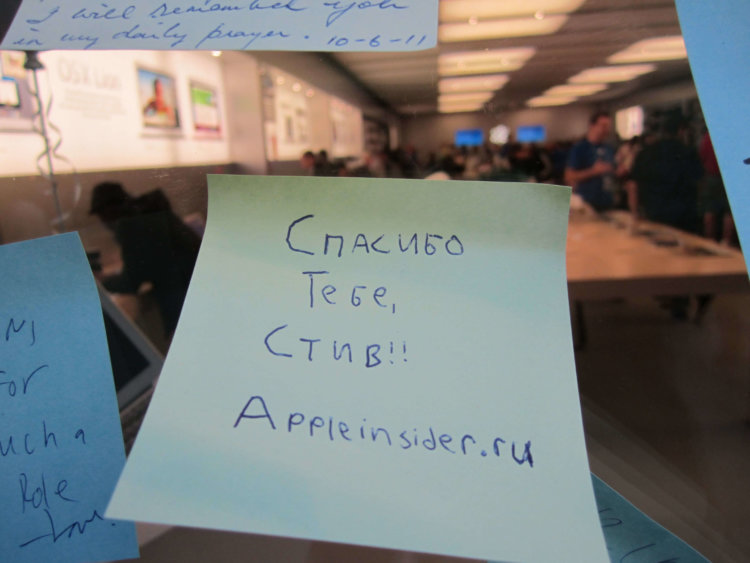 I will remember you
in my daily prayer. 10-6-11
OS X Lion
Спасибо
Тебе,
Стив!!
Appleinsider.ru
for
uch a
Role